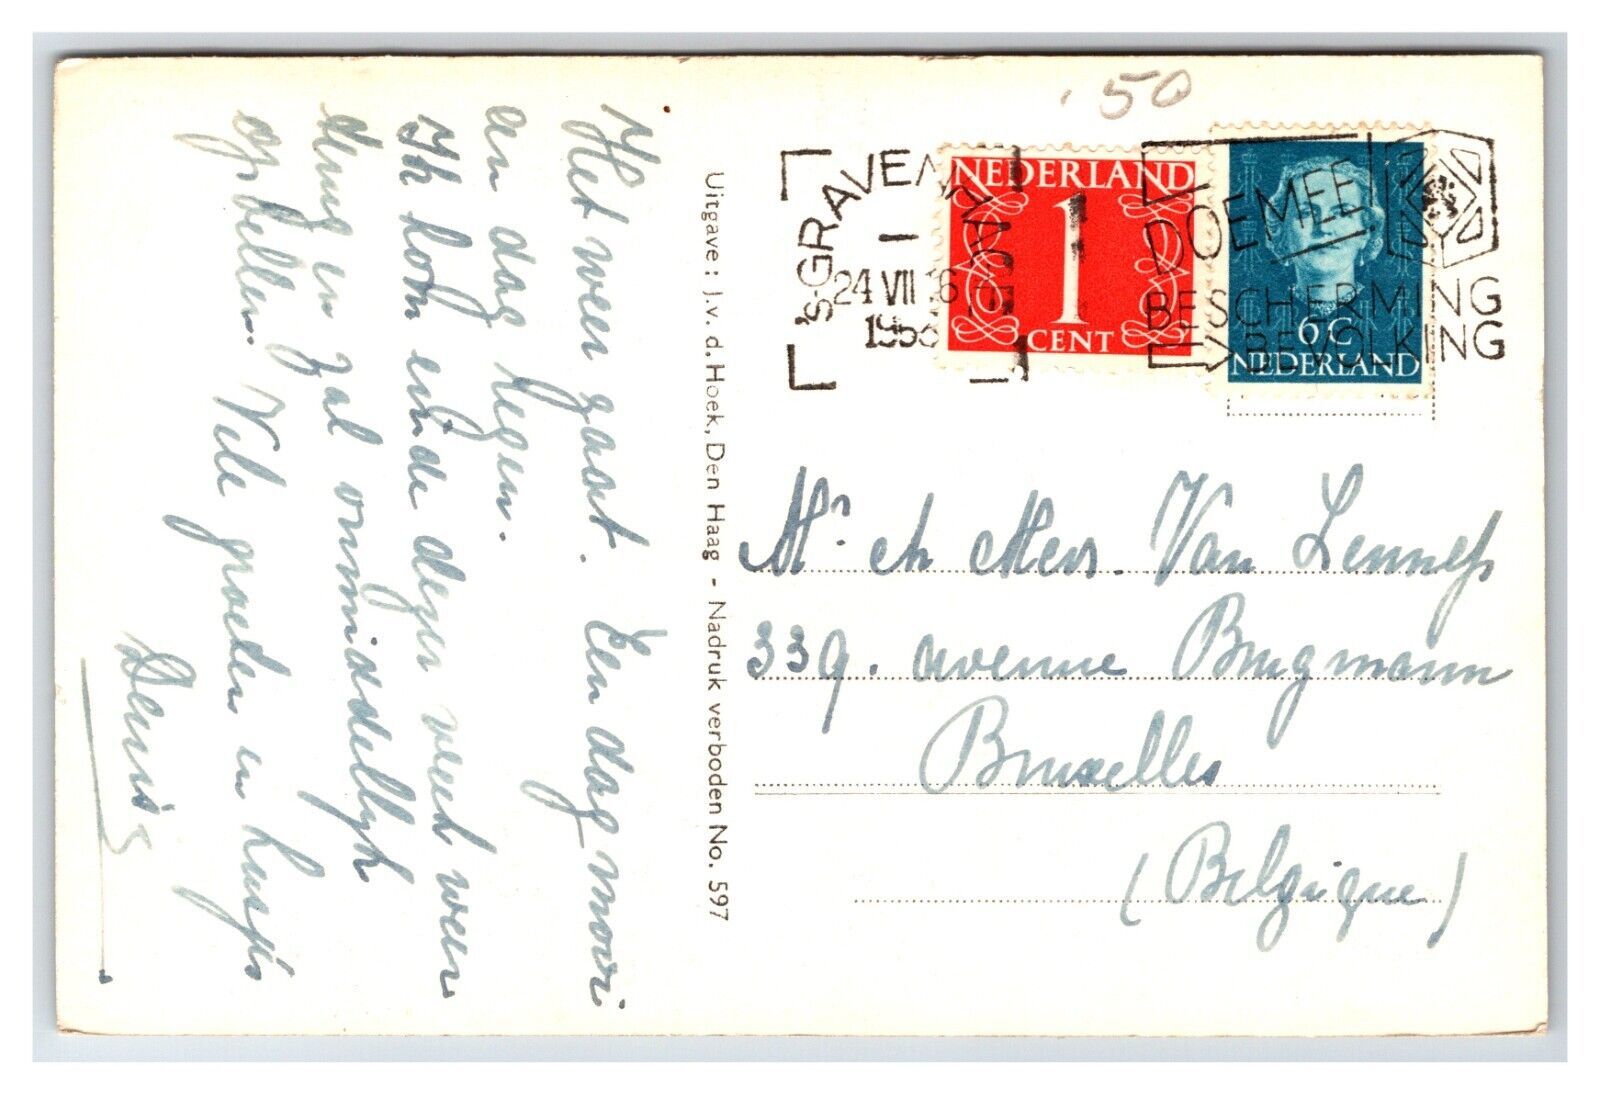 Het weer gaat. Een dag mooi
en dag regen.
Ik kom einde dezer week weer
terug en zal onmiddellijk
opbellen. Vele groeten en kusjes
Denis
Uitgave: J.v.d.Hoek, Den Haag - Nadruk verboden No. 597
.50
's-GRAVENHAGE
24 VII 16
1953
DOE MEE
BESCHERMING
BEVOLKING
NEDERLAND
1
CENT
6C
NEDERLAND
Mr. en Mevr. Van Lennep
339. avenue Brugmann
Bruxelles
(Belgique)